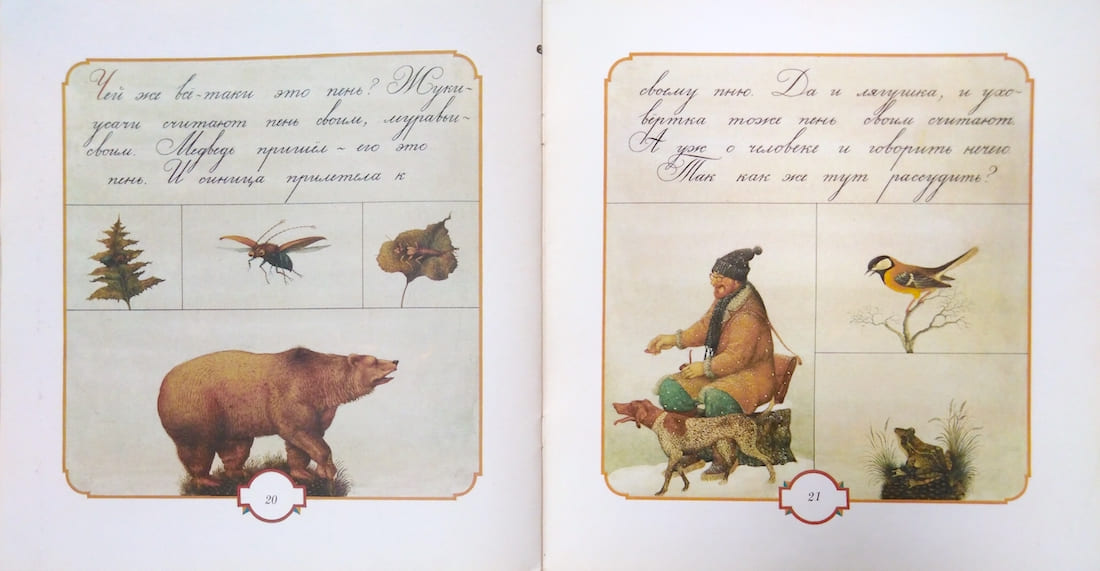 Чей же всё-таки это пень? Жуки-
усачи считают пень своим, муравьи-
своим. Медведь пришёл - его это
пень. И синица прилетела к
20
своему пню. Да и лягушка, и ухо-
вёртка тоже пень своим считают.
А уж о человеке и говорить нечего.
Так как же тут рассудить?
21